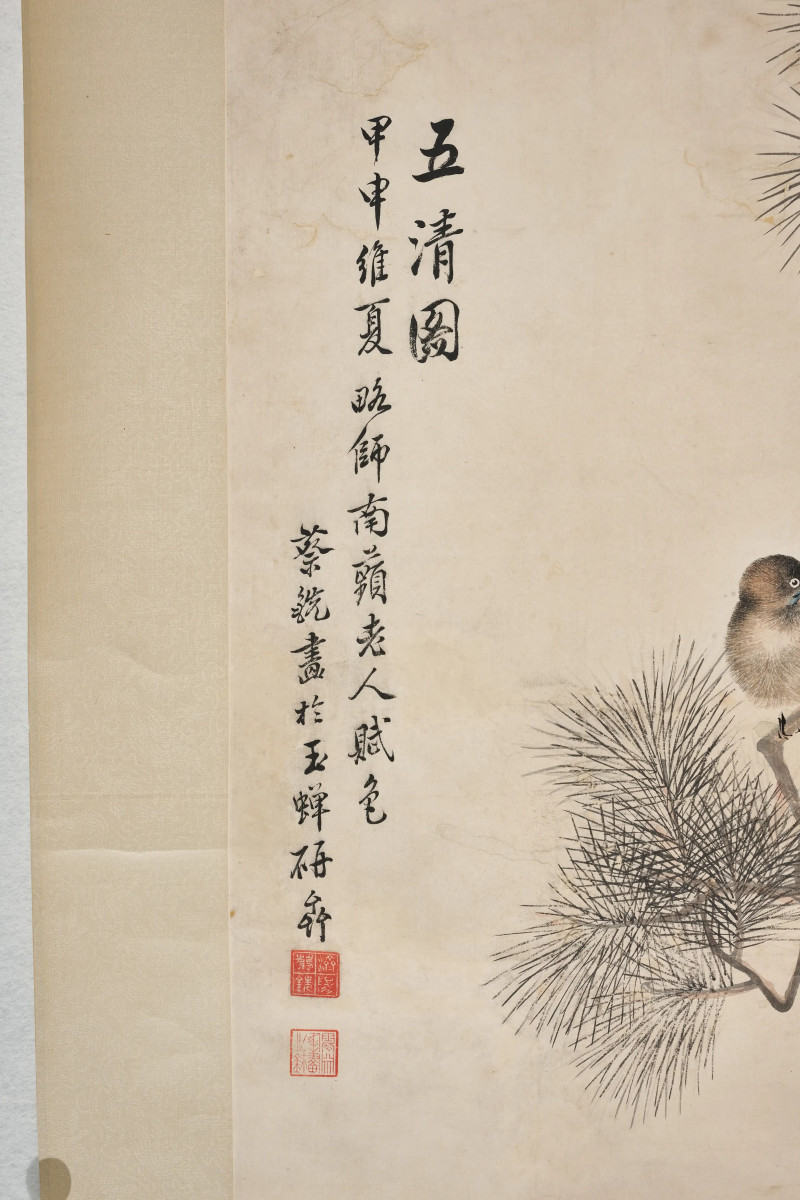 五清图
甲申維夏略師南蘋老人賦色
蔡銑畫於玉蟬研